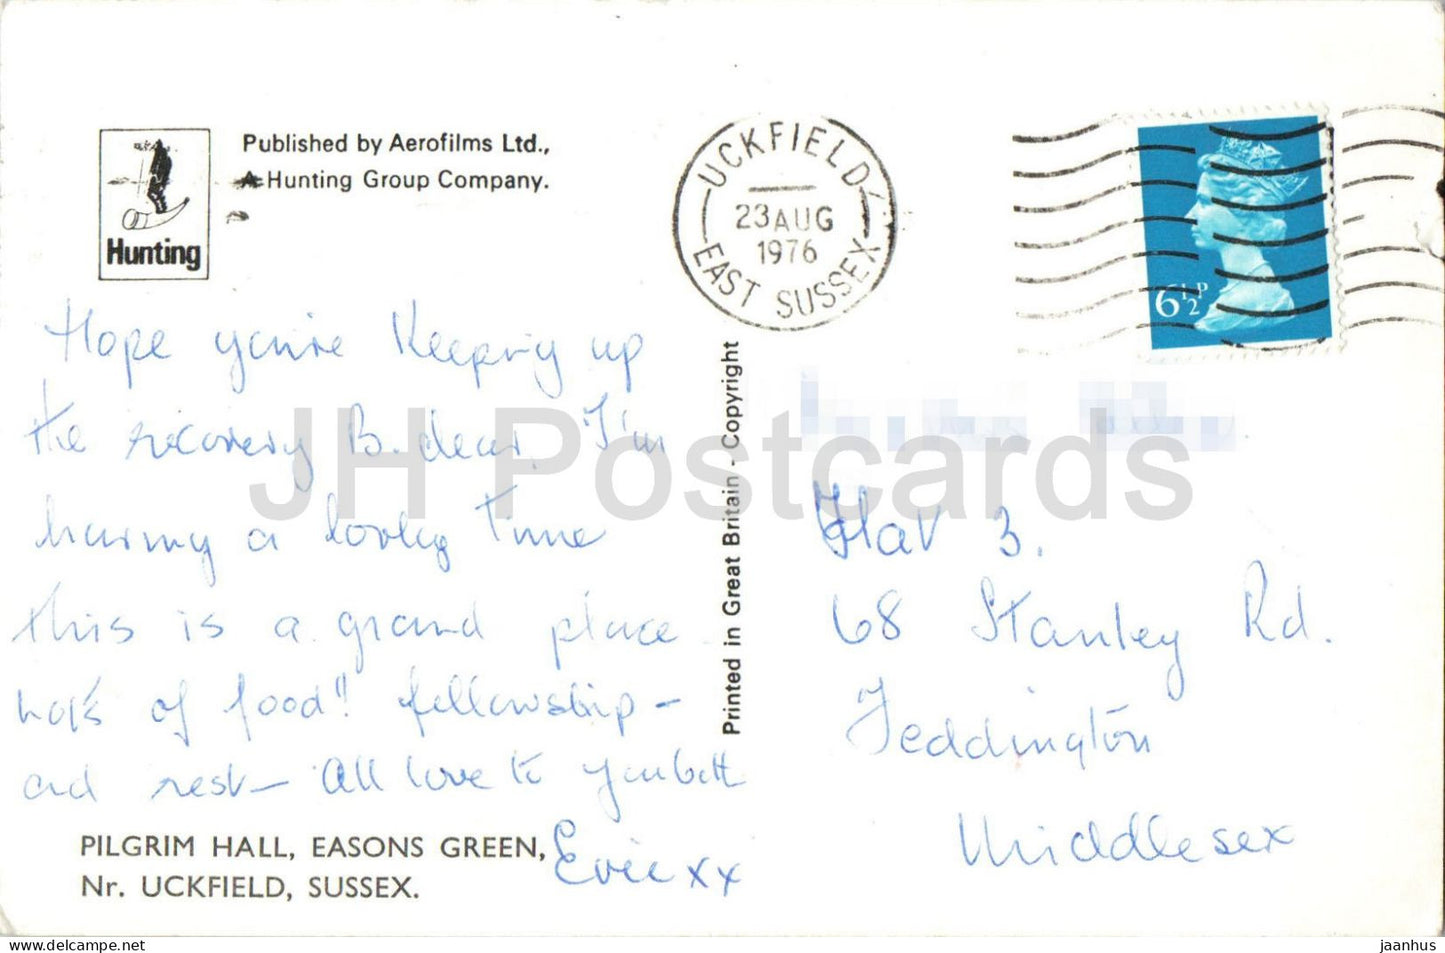 Published by Aerofilms Ltd.,
A Hunting Group Company.
Hunting
UCKFIELD
23 AUG
1976
EAST SUSSEX
6½P
Hope you're keeping up
the recovery B. dear. I'm
having a lovely time
this is a grand place
lots of food!! fellowship –
and rest – All love to you both
Evie xx
PILGRIM HALL, EASONS GREEN,
Nr. UCKFIELD, SUSSEX.
Printed in Great Britain - Copyright
Flat 3.
68 Stanley Rd.
Teddington
Middlesex
JH Postcards
jaanhus